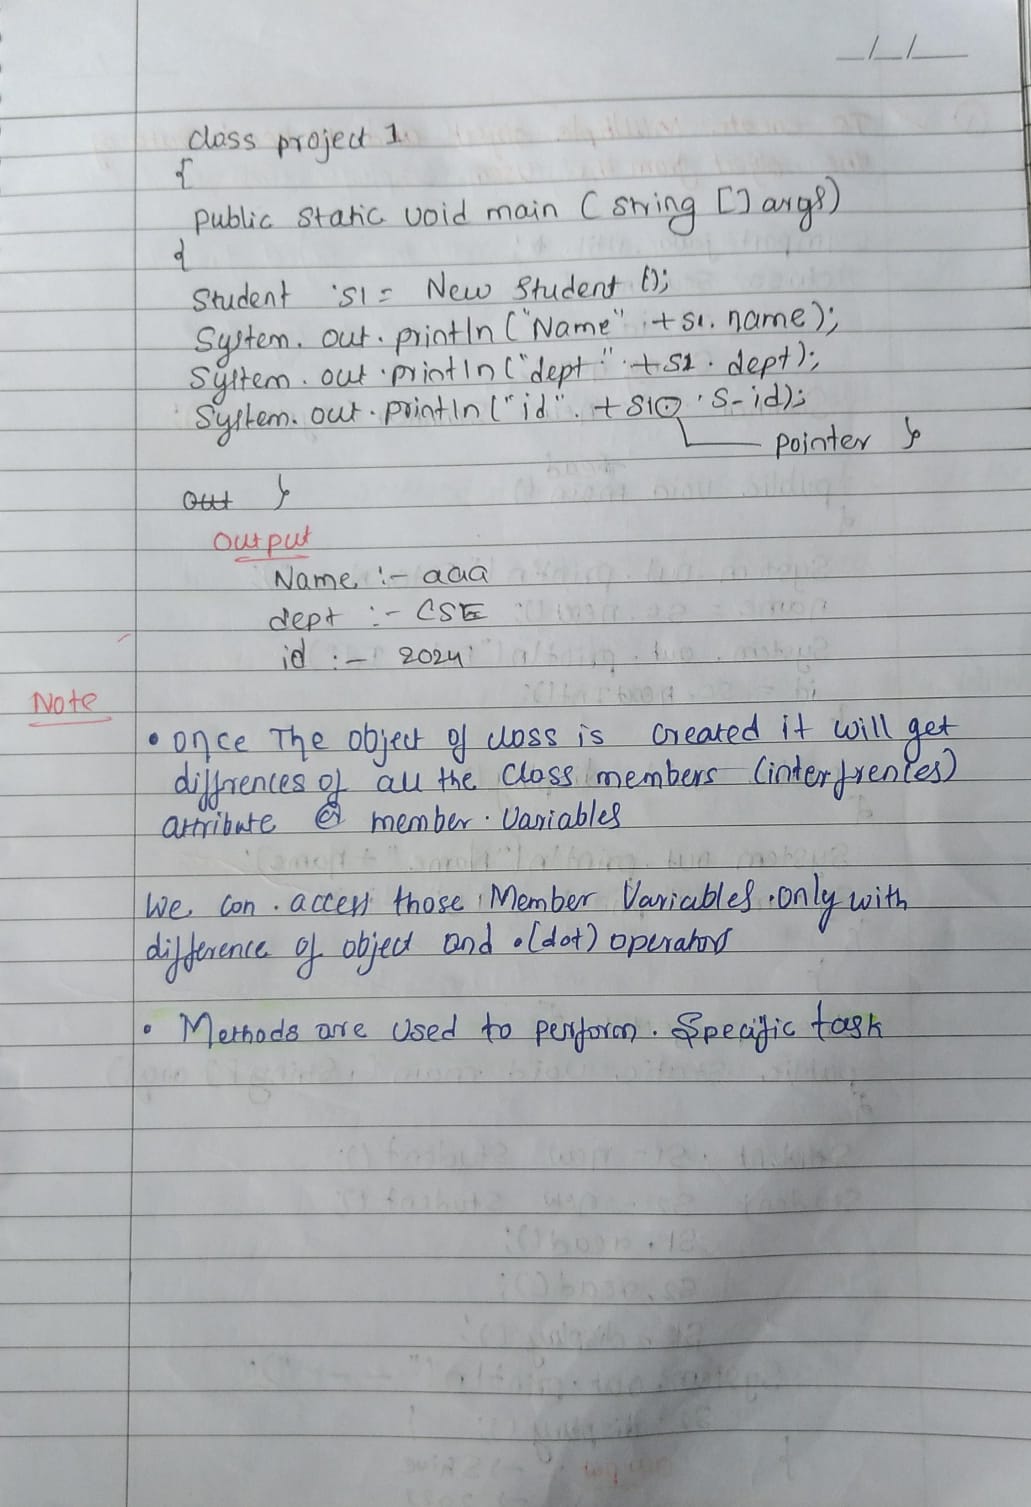 _/_/__
class project 1
{
public static void main (string [] args)
{
Student S1 = New Student ();
System. out. println ("Name" + S1. name);
System. out. println ("dept" + S1. dept);
System. out. println ("id". + S1. S-id);
pointer }
Out }
Output
Name :- aaa
dept :- CSE
id :- 2024
Note
• once The object of class is created it will get
diffrences of all the class members (interfrences)
attribute @ member. Variables
We con. access those Member Variables. only with
difference of object and .(dot) operators
• Methods are Used to perform. Specific task